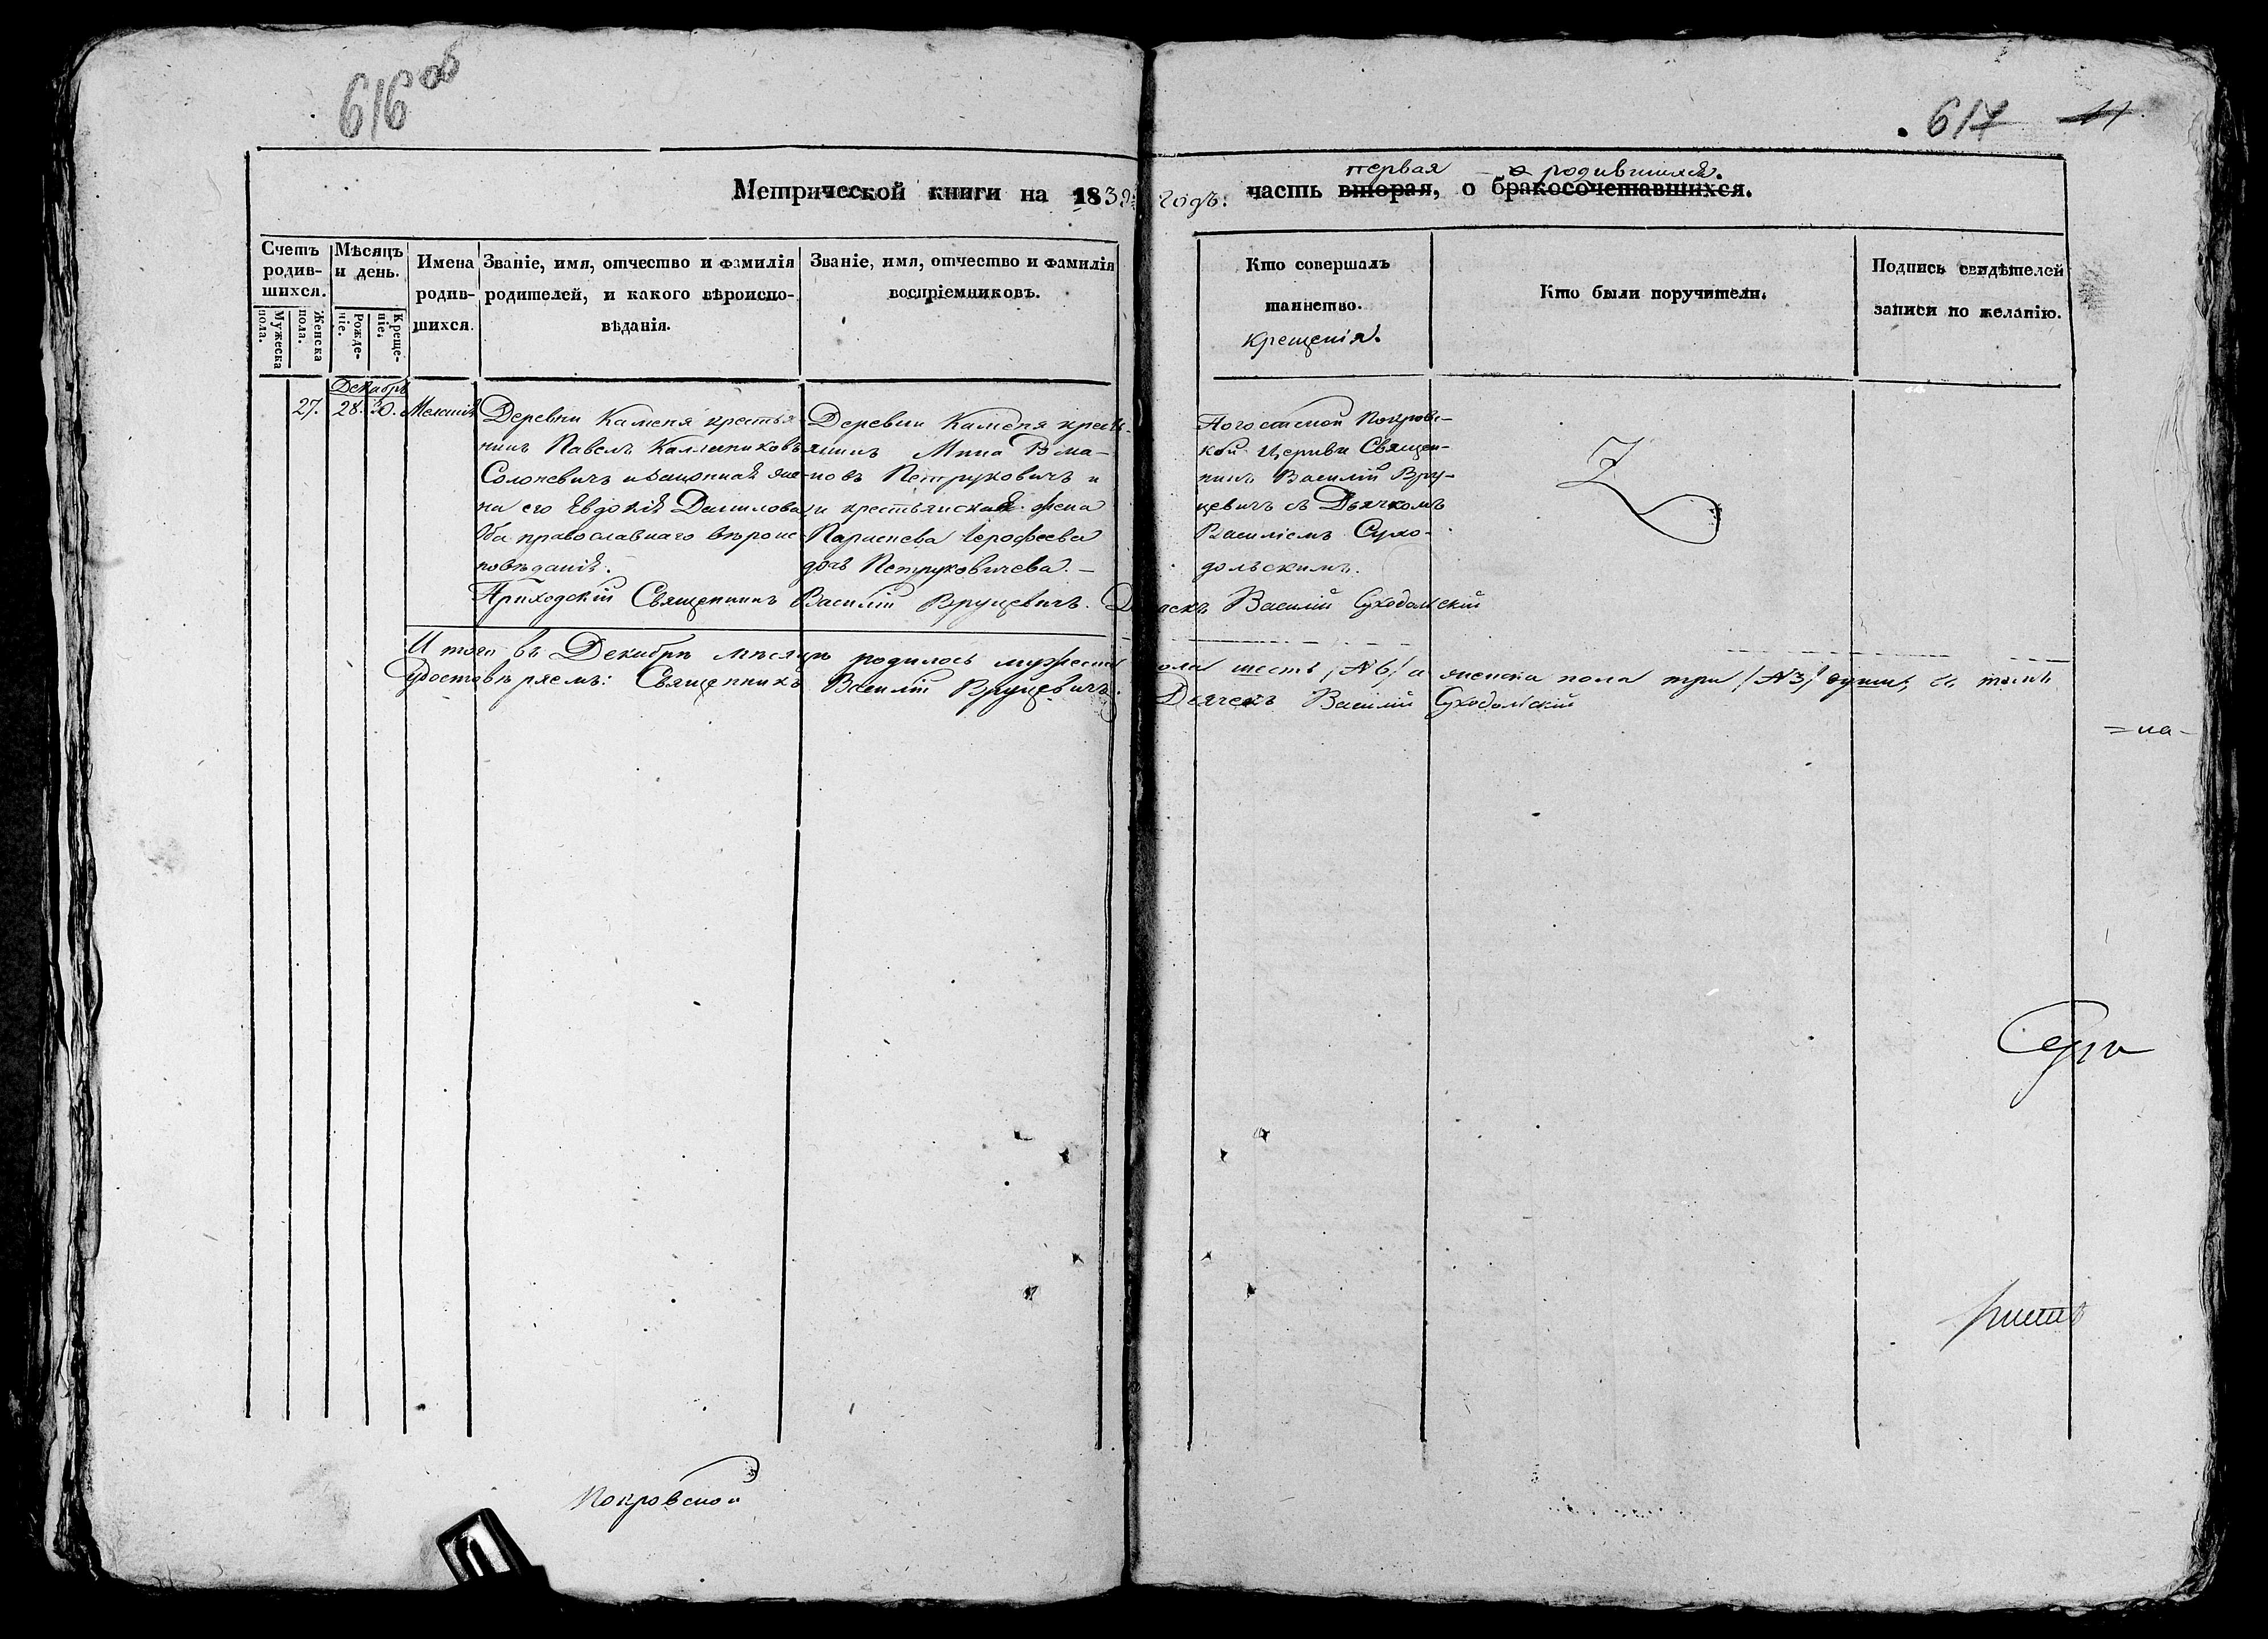 616 об
617 11
первая – о родившихся.
Метрической книги на 1839 годъ: часть вторая, о бракосочетавшихся.
Счетъ родив-шихся.
Мужеска пола.
Женска пола.
Мѣсяцъ и день.
Рожде-ніе.
Креще-ніе.
Имена родив-шихся.
Званіе, имя, отчество и фамилія
родителей, и какого вѣроиспо-
вѣданія.
Званіе, имя, отчество и фамилія
воспріемниковъ.
Кто совершалъ
таинство.
крещенія.
Кто были поручители.
Подпись свидѣтелей
записи по желанію.
Декабрь
27. 28. 30. Меланія
Деревни Каменя крестья-
нинъ Павелъ Каллиниковъ
Солоневичъ и законная же-
на его Евдокія Данилова
Оба православнаго вѣроис-
повѣданія.
Деревни Каменя кресть-
янинъ Мина
новъ Петруковичъ и
крестьянская жена
Параскева Іерофеева
дочь Петруковичева. –
Погостской Покровс-
кой Церкви Священ-
никъ Василій Вру-
цевичъ съ Дьячкомъ
Василіемъ Сухо-
дольскимъ.
Приходскій Священникъ Василій Вруцевичъ. Дьячекъ Василій Суходольскій
Итого въ Декабрѣ мѣсяцѣ родилось мужеска пола шесть /№ 6/ а женска пола три /№ 3/ душъ, въ томъ
Удостовѣряемъ: Священникъ Василій Вруцевичъ. Дьячекъ Василій Суходольскій
= на -
Покровской